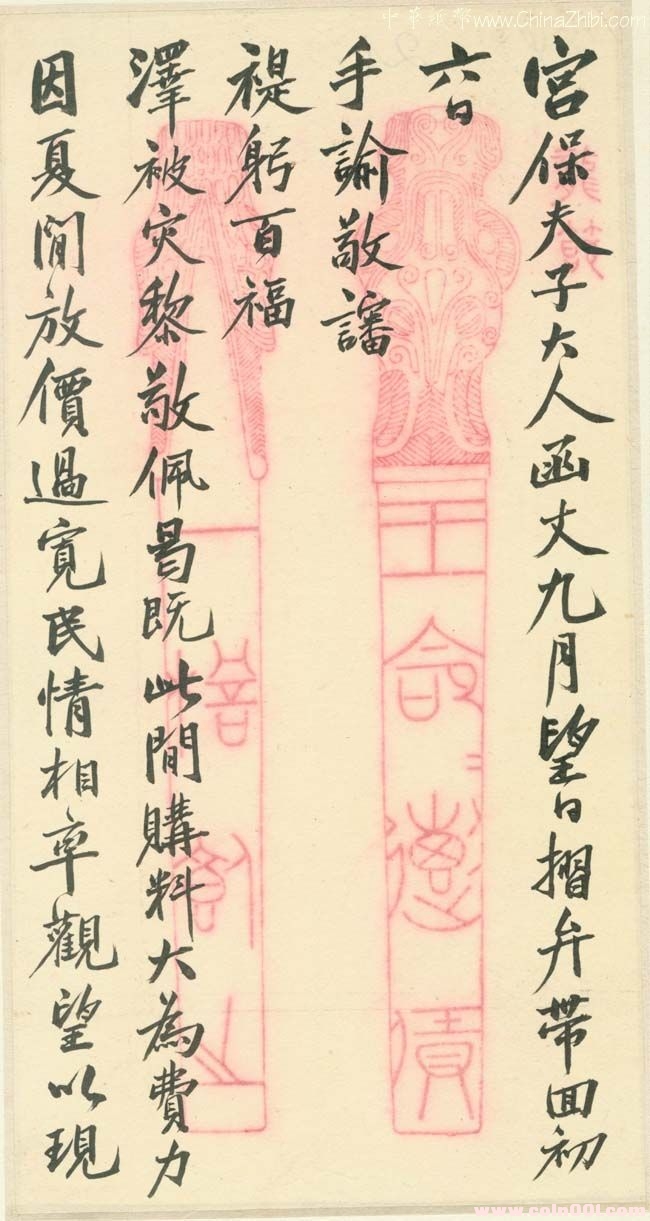 宮保夫子大人函丈九月望日摺弁帶回初
六日
手諭敬審
禔躬百福
澤被灾黎敬佩曷既此間購料大為費力
因夏間放價過寬民情相率觀望以現
王命
一
中華紙幣
www.ChinaZhibi.com
www.coin001.com